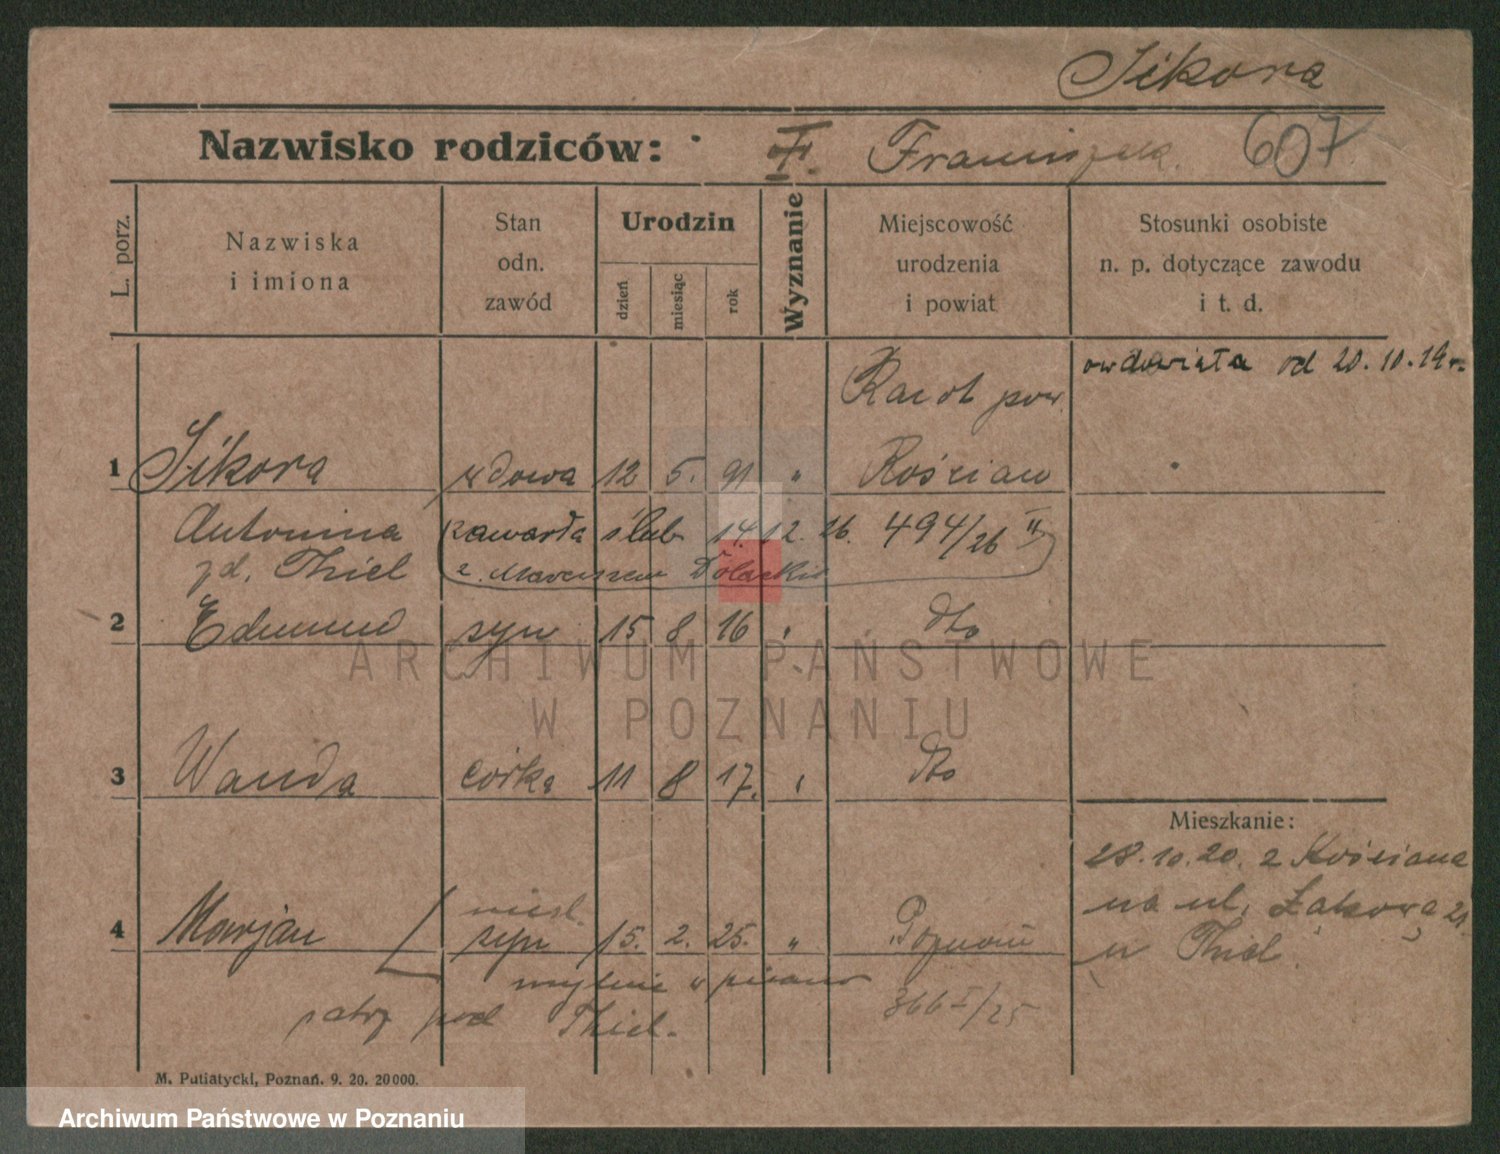 Sikora
Nazwisko rodziców: Franciszek. 607
L. porz.
Nazwiska i imiona
Stan odn. zawód
Urodzin
dzień miesiąc rok
Wyznanie
Miejscowość urodzenia i powiat
Stosunki osobiste n. p. dotyczące zawodu i t. d.
owdowiała od 20.10.19 r.
Racot pow.
1 Sikora wdowa 12 5. 91 " Kościan
Antonina zawarła ślub 14.12.26. 494/26 II
zd. Thiel z Marciszem
2 Edmund syn 15 8 16 " dto
3 Wanda córka 11 8 17. " dto
Mieszkanie:
28.10.20. z Kościana
na ul. Łąkową 21
u Thiel.
niesl.
4 Marjan syn 15. 2. 25. " Poznań
mylnie wpisano 366 I/25
patrz pod Thiel.
M. Putiatycki, Poznań. 9. 20. 20000.
ARCHIWUM PAŃSTWOWE
W POZNANIU
Archiwum Państwowe w Poznaniu